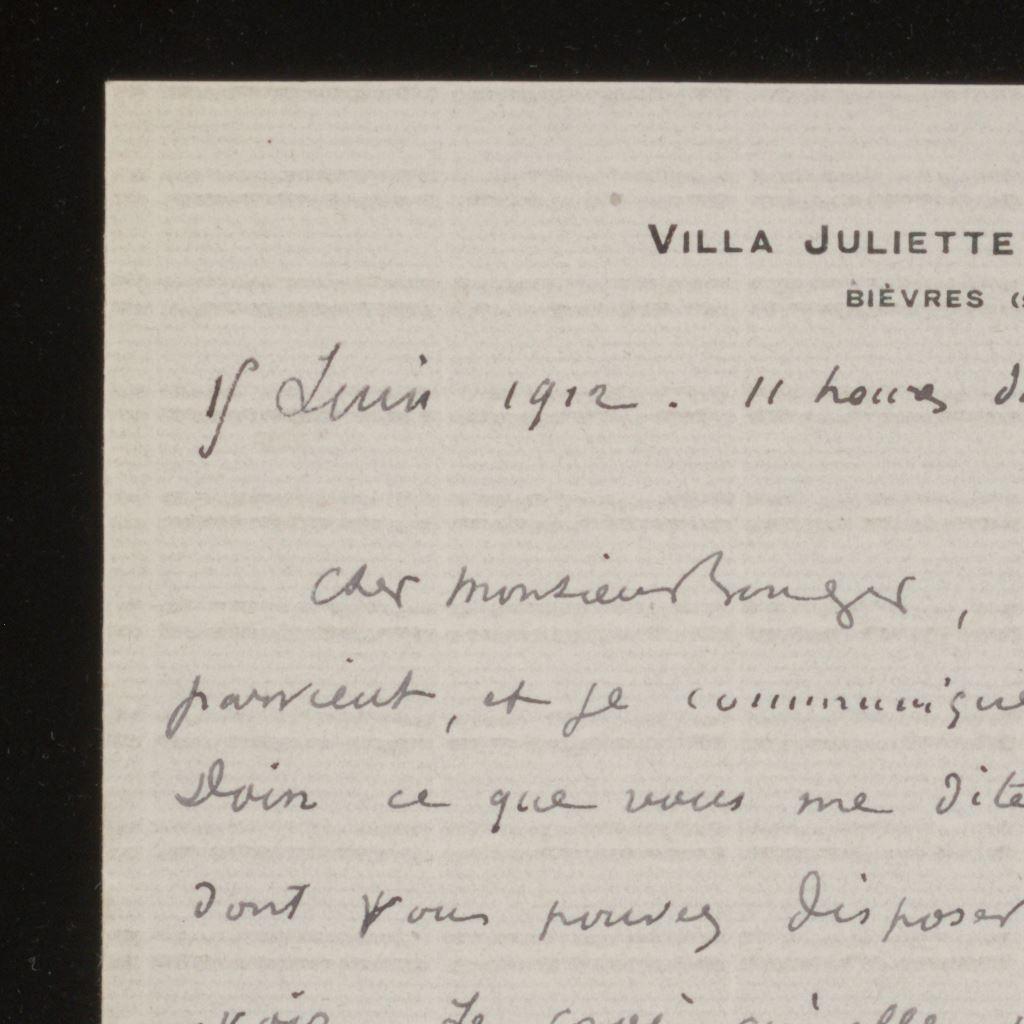 VILLA JULIETTE
BIÈVRES (
15 Juin 1912. 11 heures
Cher Monsieur Bonger,
parvient, et je communique
Doin ce que vous me dite
dont vous pouvez disposer
Je crois qu'elle